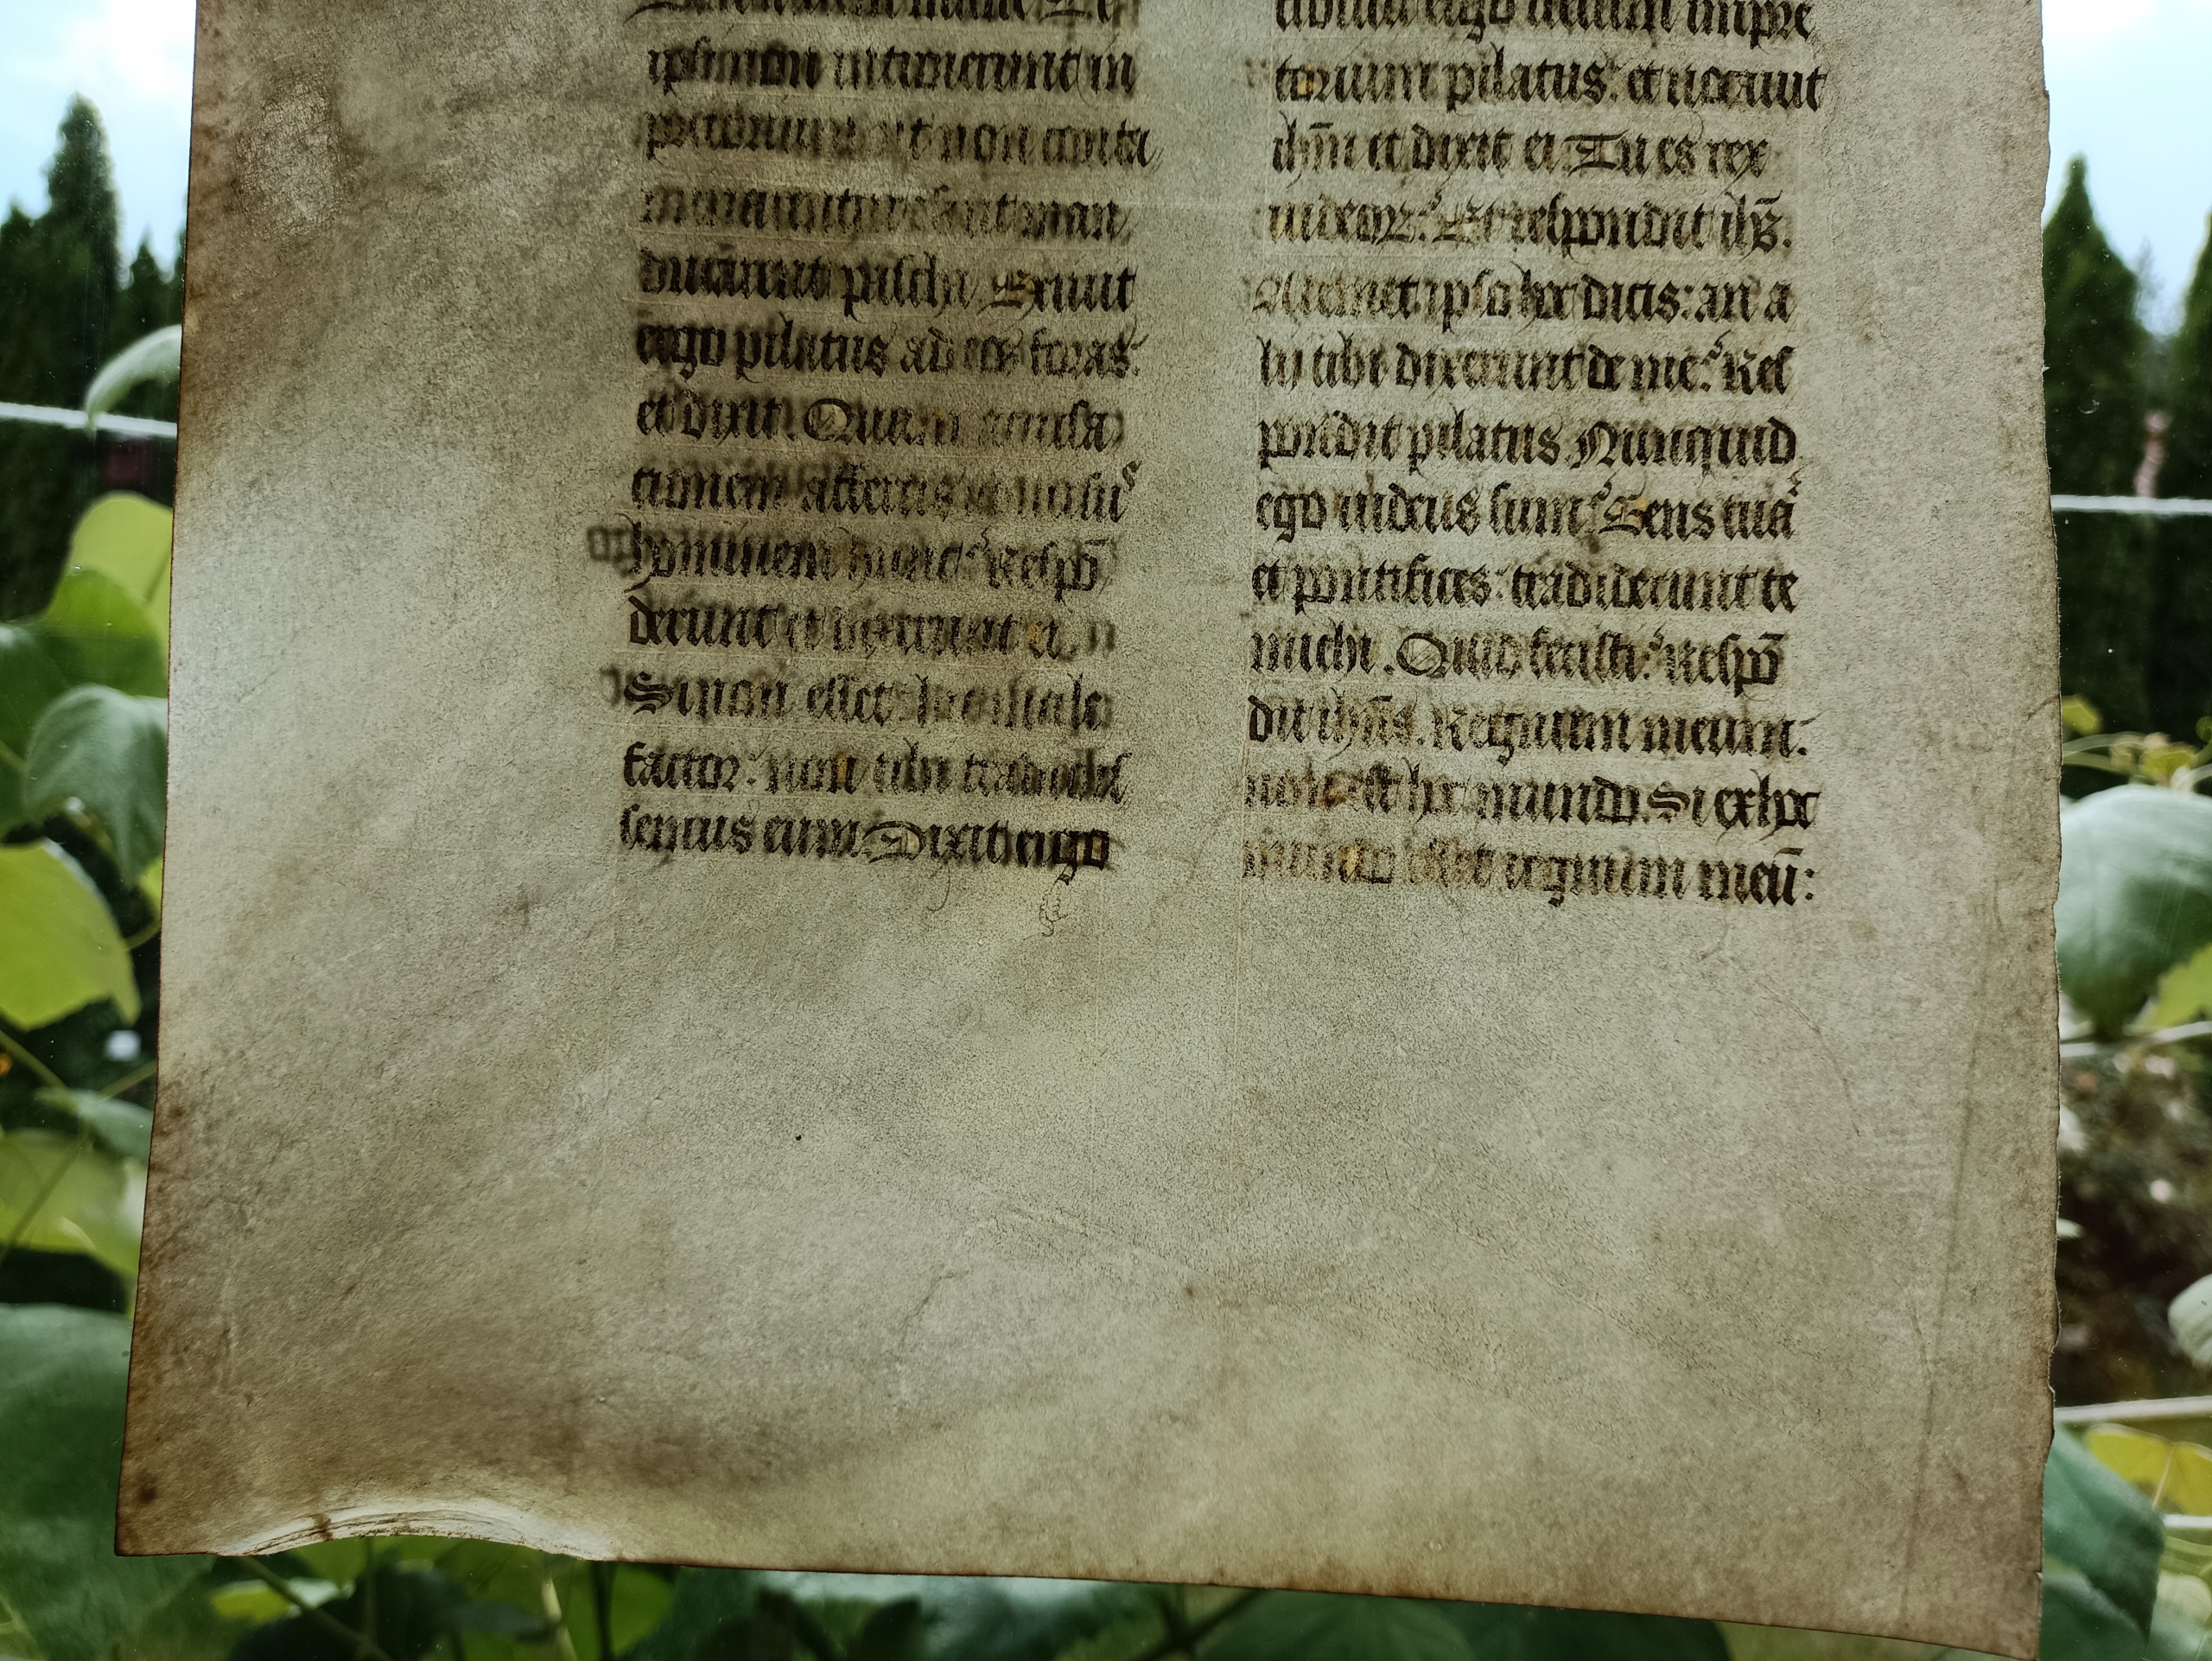 ipsi non introierunt in
pretorium ut non conta
minarentur: sed ut man
ducarent pascha. Exiuit
ergo pilatus ad eos foras:
et dixit. Quam accusa
tionem affertis adusus
hominem hunc? Respō
derunt et dixerunt ei.
Si non esset hic male
factor: non tibi tradidis
semus eum. Dixit ergo
ergo iterum in pre
torium pilatus: et uocauit
ihm̄ et dixit ei. Tu es rex
iudeoꝝ? Et respondit ihs̄.
A temet ipso hoc dicis: an a
lij tibi dixerunt de me? Res
pondit pilatus. Nunquid
ego iudeus sum? Gens tua
et pontifices: tradiderunt te
michi. Quid fecisti? Respō
dit ihūs. Regnum meum:
non est hoc mundo. Si ex hoc
mundo esset regnum meū: